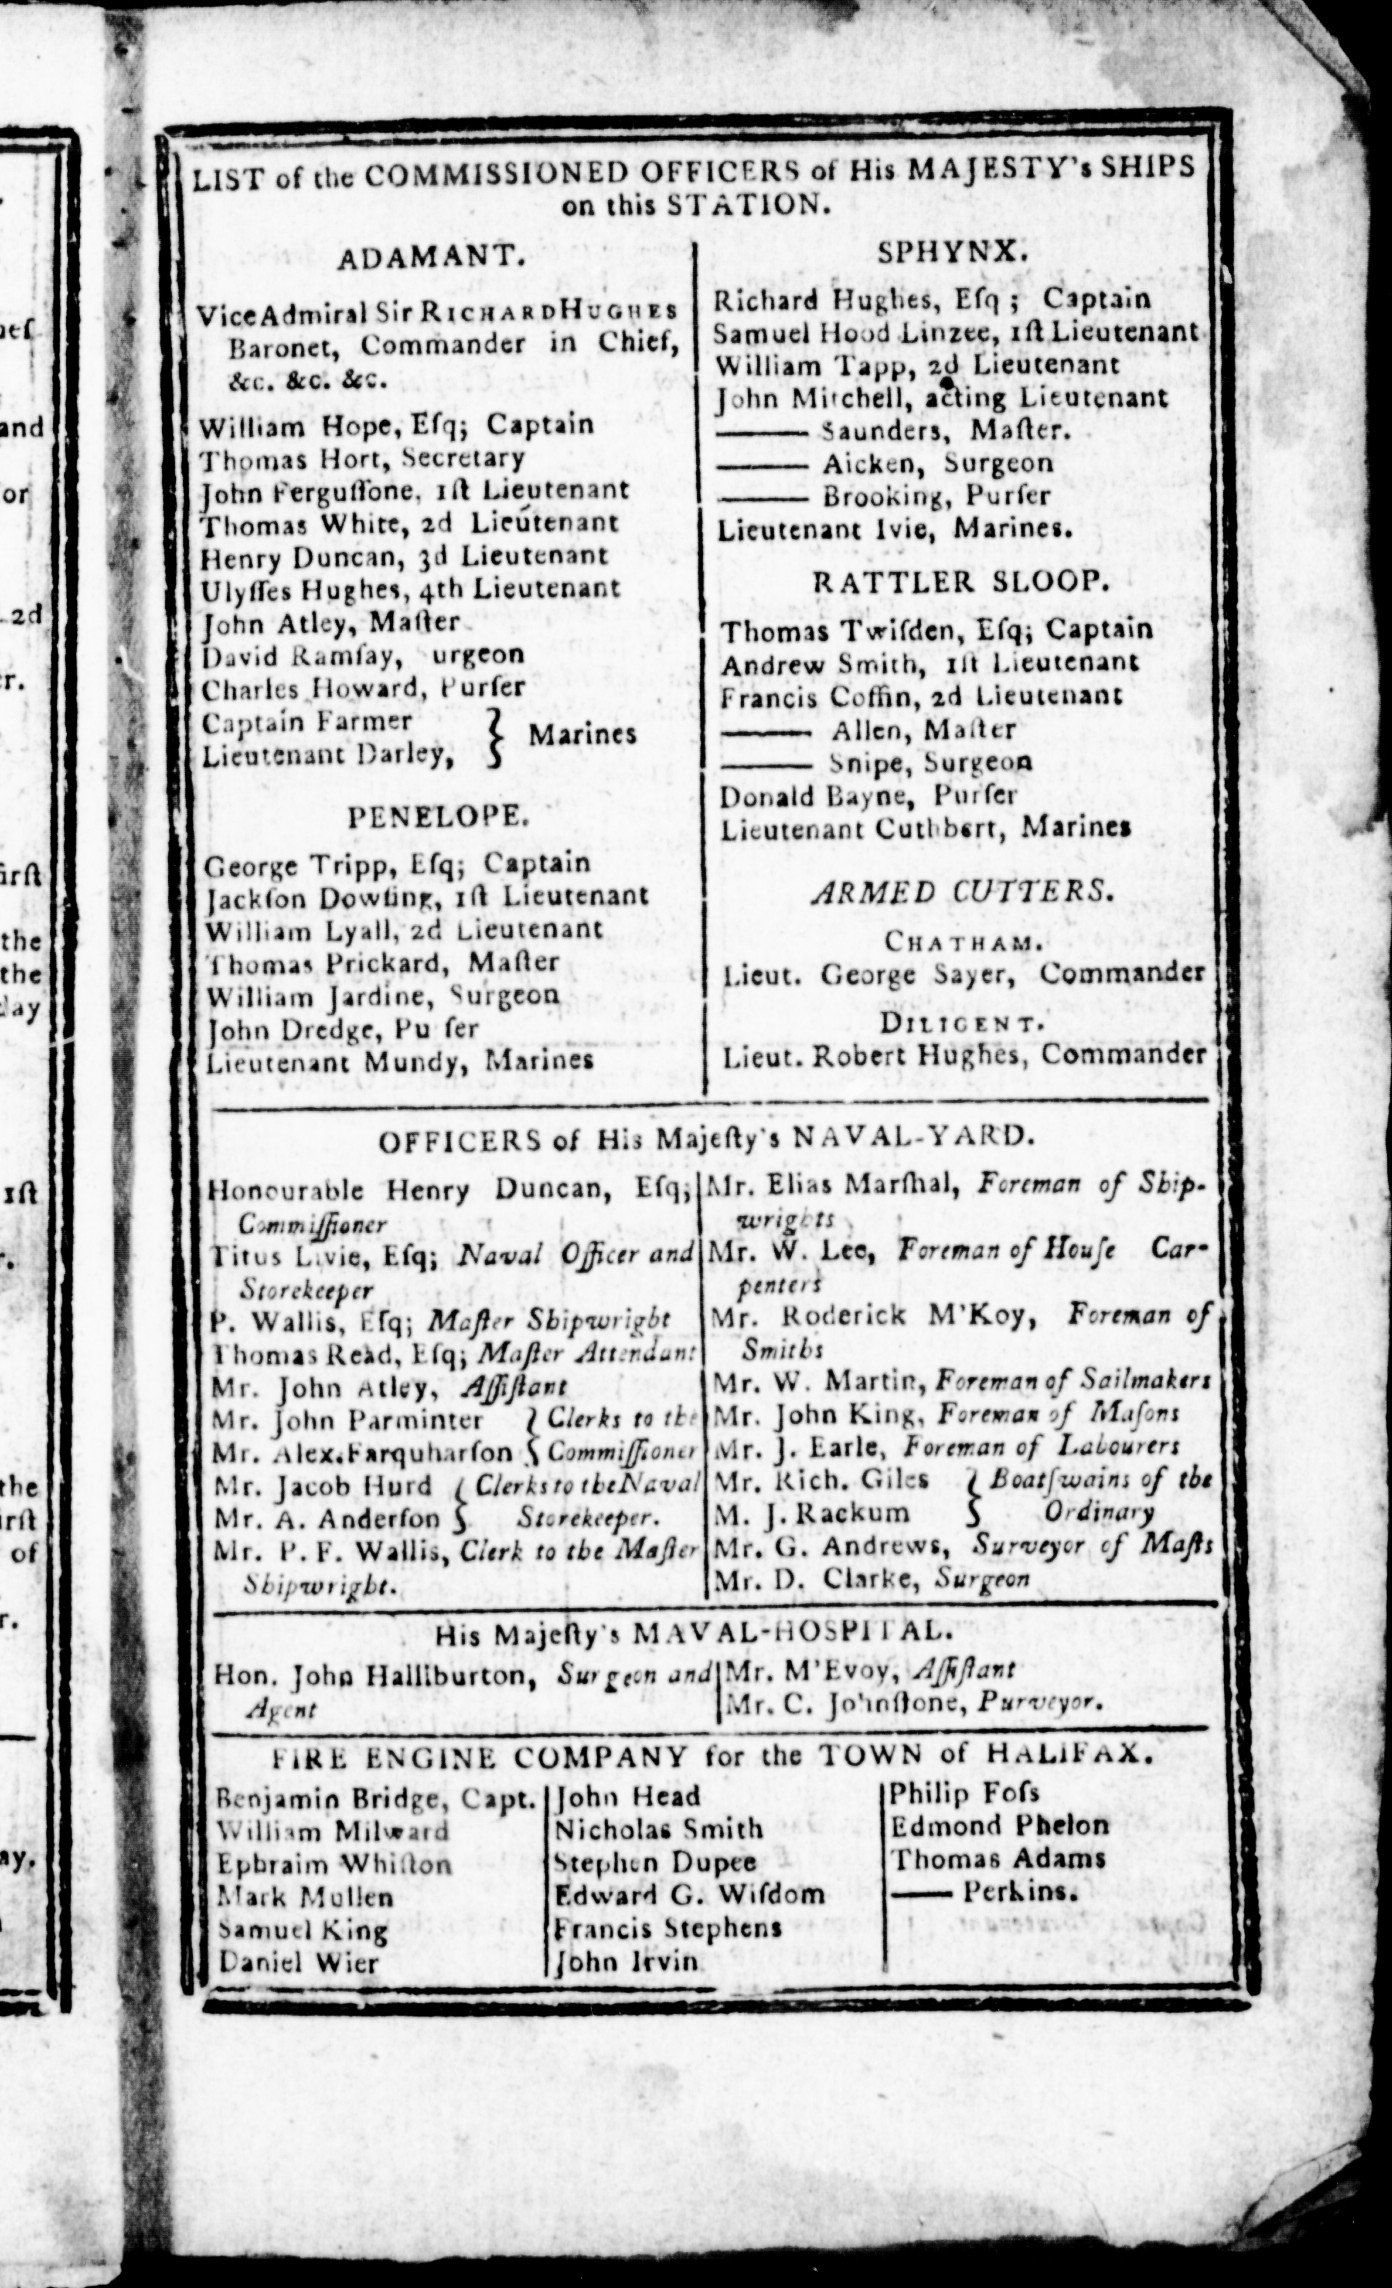 LIST of the COMMISSIONED OFFICERS of His MAJESTY's SHIPS
on this STATION.
ADAMANT.
Vice Admiral Sir RICHARD HUGHES
Baronet, Commander in Chief,
&c. &c. &c.
William Hope, Eſq; Captain
Thomas Hort, Secretary
John Ferguſſone, 1ſt Lieutenant
Thomas White, 2d Lieutenant
Henry Duncan, 3d Lieutenant
Ulyſſes Hughes, 4th Lieutenant
John Atley, Maſter
David Ramſay, urgeon
Charles Howard, Purſer
Captain Farmer
Lieutenant Darley, } Marines
PENELOPE.
George Tripp, Eſq; Captain
Jackſon Dowling, 1ſt Lieutenant
William Lyall, 2d Lieutenant
Thomas Prickard, Maſter
William Jardine, Surgeon
John Dredge, Pu ſer
Lieutenant Mundy, Marines
SPHYNX.
Richard Hughes, Eſq; Captain
Samuel Hood Linzee, 1ſt Lieutenant
William Tapp, 2d Lieutenant
John Mitchell, acting Lieutenant
—— Saunders, Maſter.
—— Aicken, Surgeon
—— Brooking, Purſer
Lieutenant Ivie, Marines.
RATTLER SLOOP.
Thomas Twiſden, Eſq; Captain
Andrew Smith, 1ſt Lieutenant
Francis Coffin, 2d Lieutenant
—— Allen, Maſter
—— Snipe, Surgeon
Donald Bayne, Purſer
Lieutenant Cuthbert, Marines
ARMED CUTTERS.
CHATHAM.
Lieut. George Sayer, Commander
DILIGENT.
Lieut. Robert Hughes, Commander
OFFICERS of His Majeſty's NAVAL-YARD.
Honourable Henry Duncan, Eſq;
Commiſſioner
Titus Livie, Eſq; Naval Officer and
Storekeeper
P. Wallis, Eſq; Maſter Shipwright
Thomas Read, Eſq; Maſter Attendant
Mr. John Atley, Aſſiſtant
Mr. John Parminter } Clerks to the
Mr. Alex. Farquharſon } Commiſſioner
Mr. Jacob Hurd { Clerks to the Naval
Mr. A. Anderſon } Storekeeper.
Mr. P. F. Wallis, Clerk to the Maſter
Shipwright.
Mr. Elias Marſhal, Foreman of Ship-
wrights
Mr. W. Lee, Foreman of Houſe Car-
penters
Mr. Roderick M'Koy, Foreman of
Smiths
Mr. W. Martin, Foreman of Sailmakers
Mr. John King, Foreman of Maſons
Mr. J. Earle, Foreman of Labourers
Mr. Rich. Giles } Boatſwains of the
M. J. Rackum } Ordinary
Mr. G. Andrews, Surveyor of Maſts
Mr. D. Clarke, Surgeon
His Majeſty's MAVAL-HOSPITAL.
Hon. John Halliburton, Surgeon and
Agent
Mr. M'Evoy, Aſſiſtant
Mr. C. Johnſtone, Purveyor.
FIRE ENGINE COMPANY for the TOWN of HALIFAX.
Benjamin Bridge, Capt.
William Milward
Ephraim Whiſton
Mark Mullen
Samuel King
Daniel Wier
John Head
Nicholas Smith
Stephen Dupee
Edward G. Wiſdom
Francis Stephens
John Irvin
Philip Foſs
Edmond Phelon
Thomas Adams
—— Perkins.